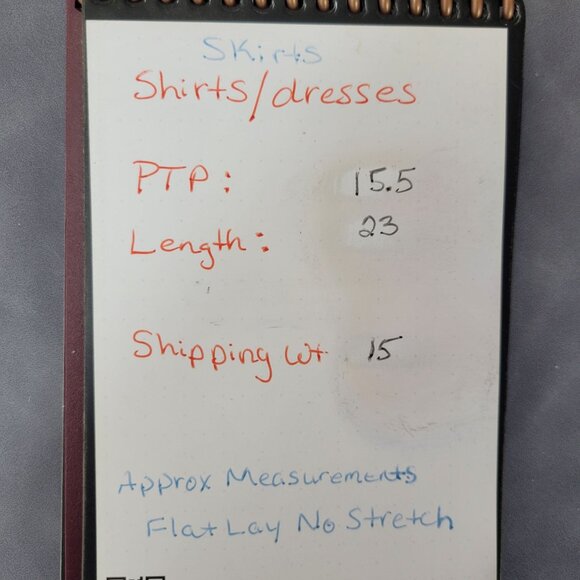 SKirts
Shirts/dresses
PTP: 15.5
Length: 23
Shipping wt 15
Approx Measurements
Flat Lay No Stretch